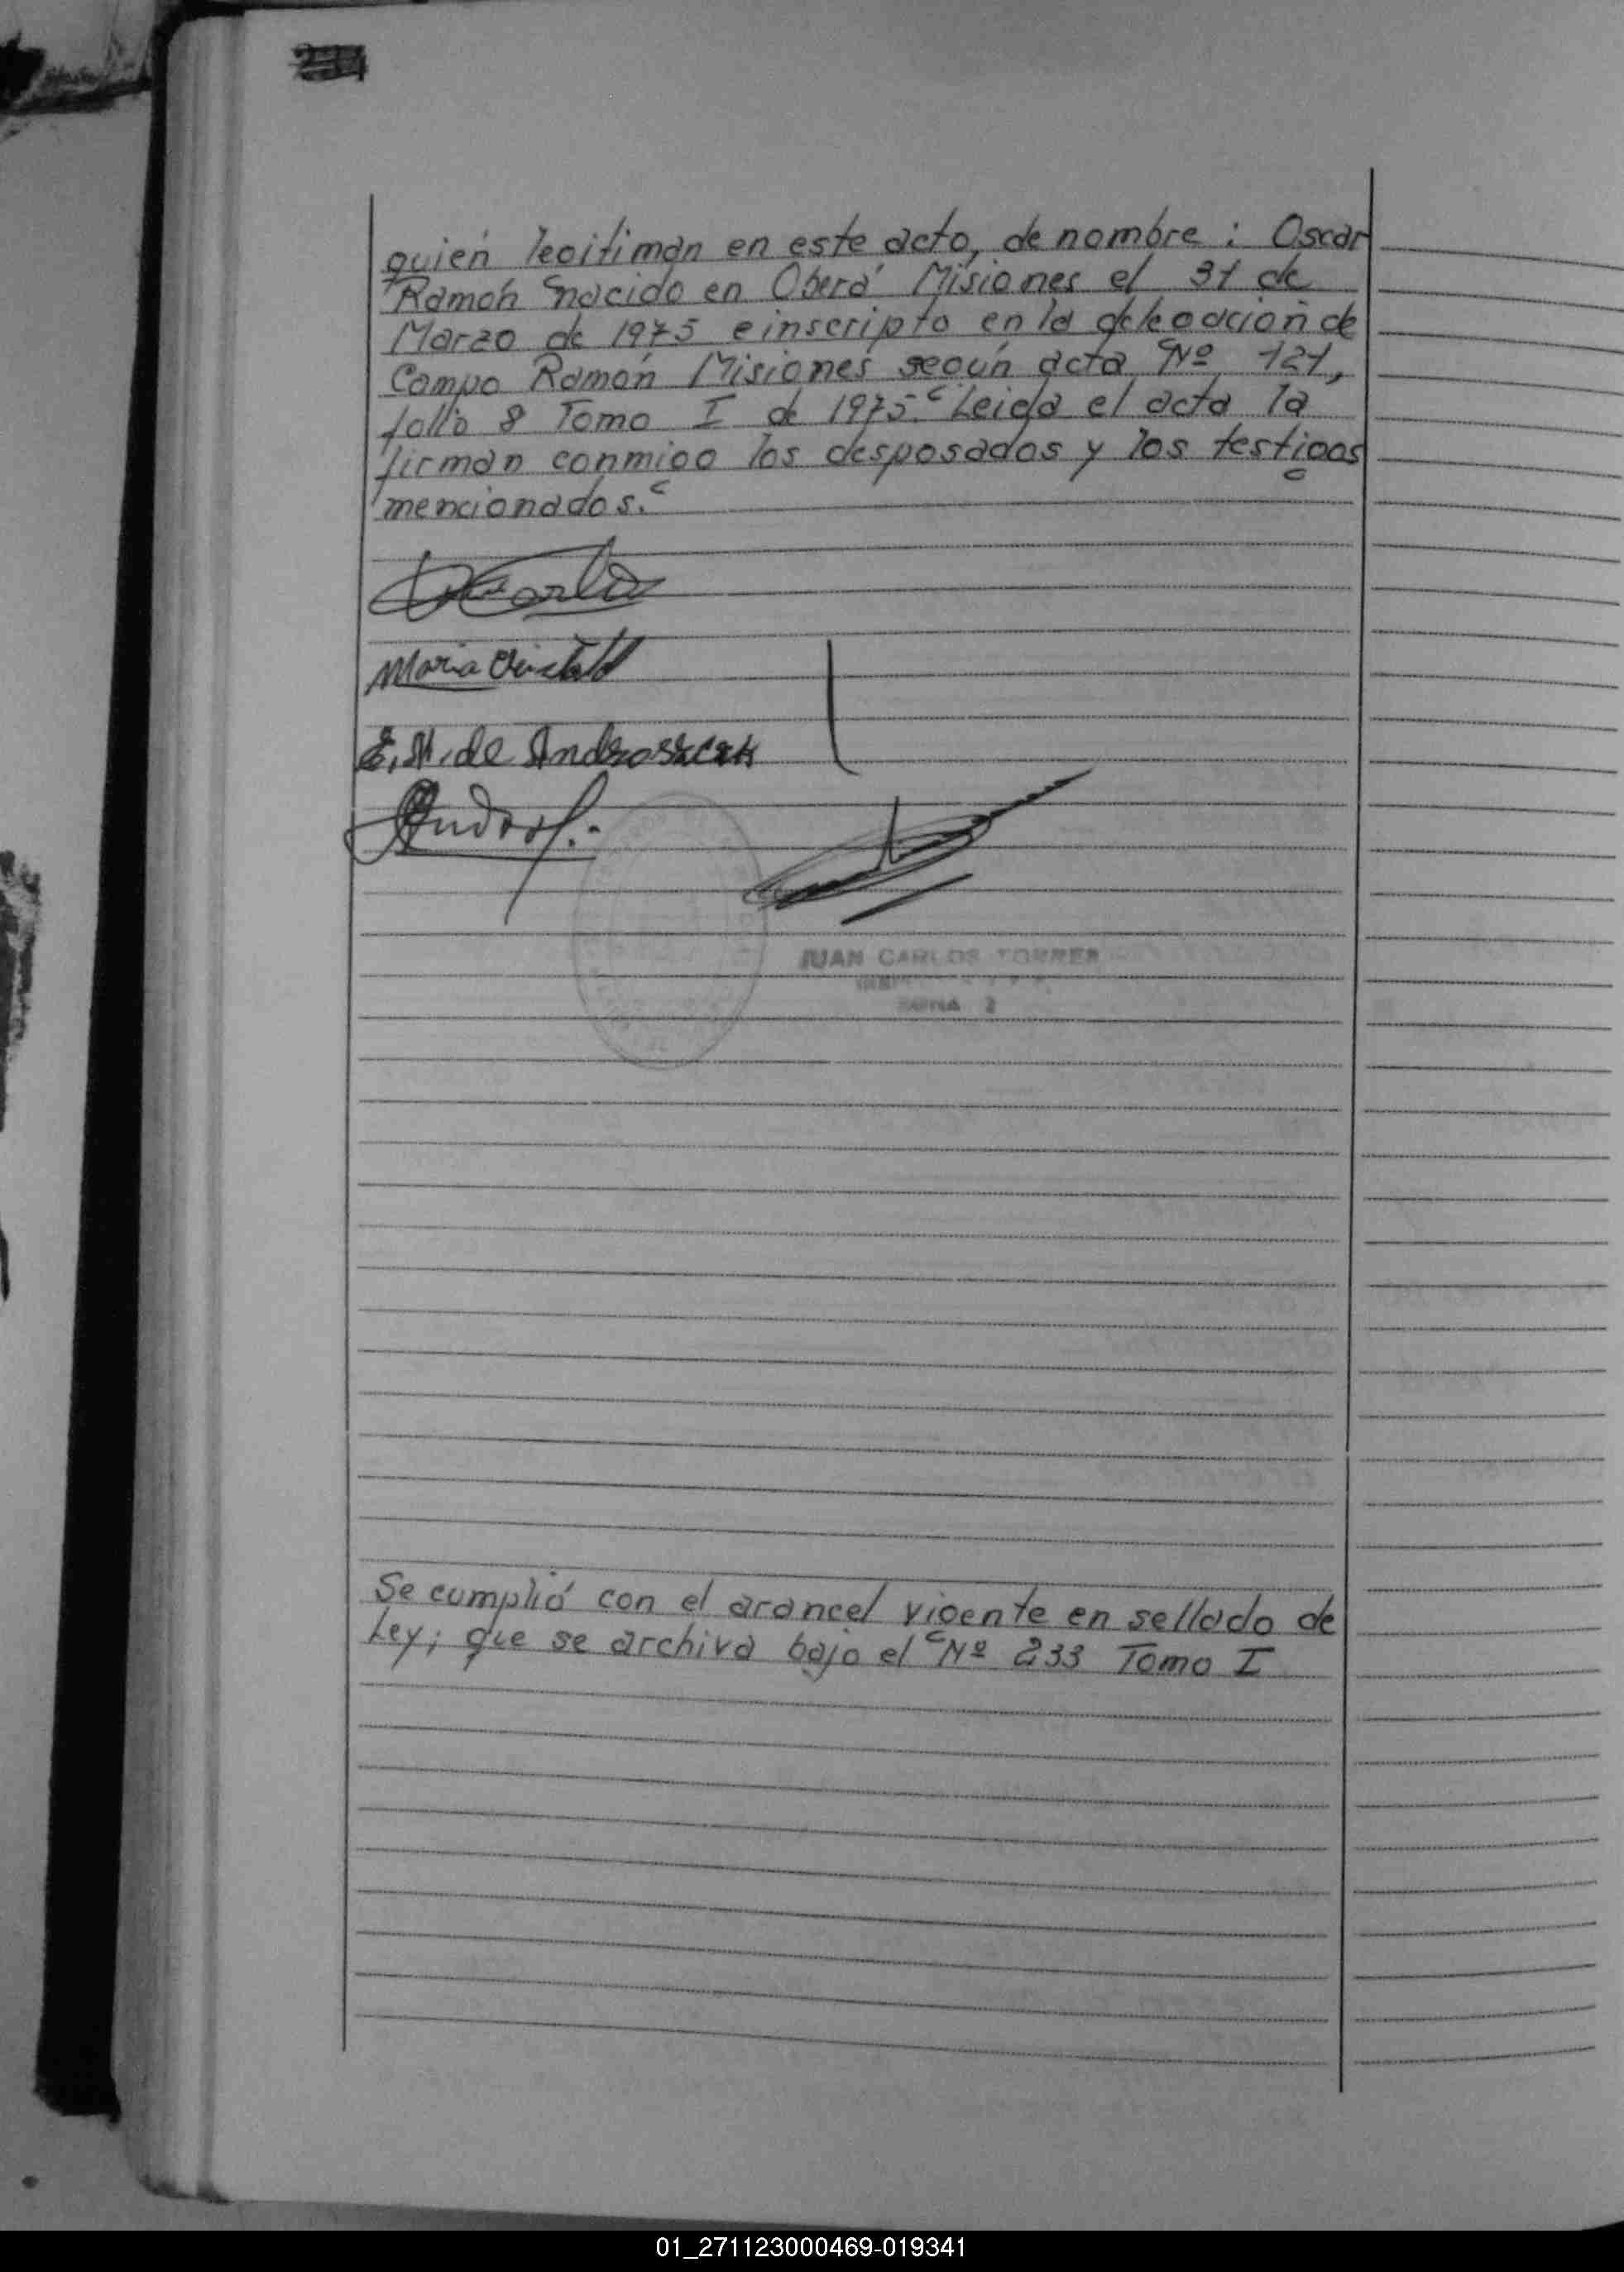 quién legitiman en este acto, de nombre: Oscar
Ramón nacido en Oberá Misiones el 31 de
Marzo de 1975 e inscripto en la delegación de
Campo Ramón Misiones según acta Nº 121,
follo 8 Tomo I de 1975. Leida el acta la
firman conmigo los desposados y los testigos
mencionados.
Maria
E. N. de Androszczuk
JUAN CARLOS TORRES
ZONA 2
Se cumplió con el arancel vigente en sellado de
Ley; que se archiva bajo el Nº 233 Tomo I
01_271123000469-019341